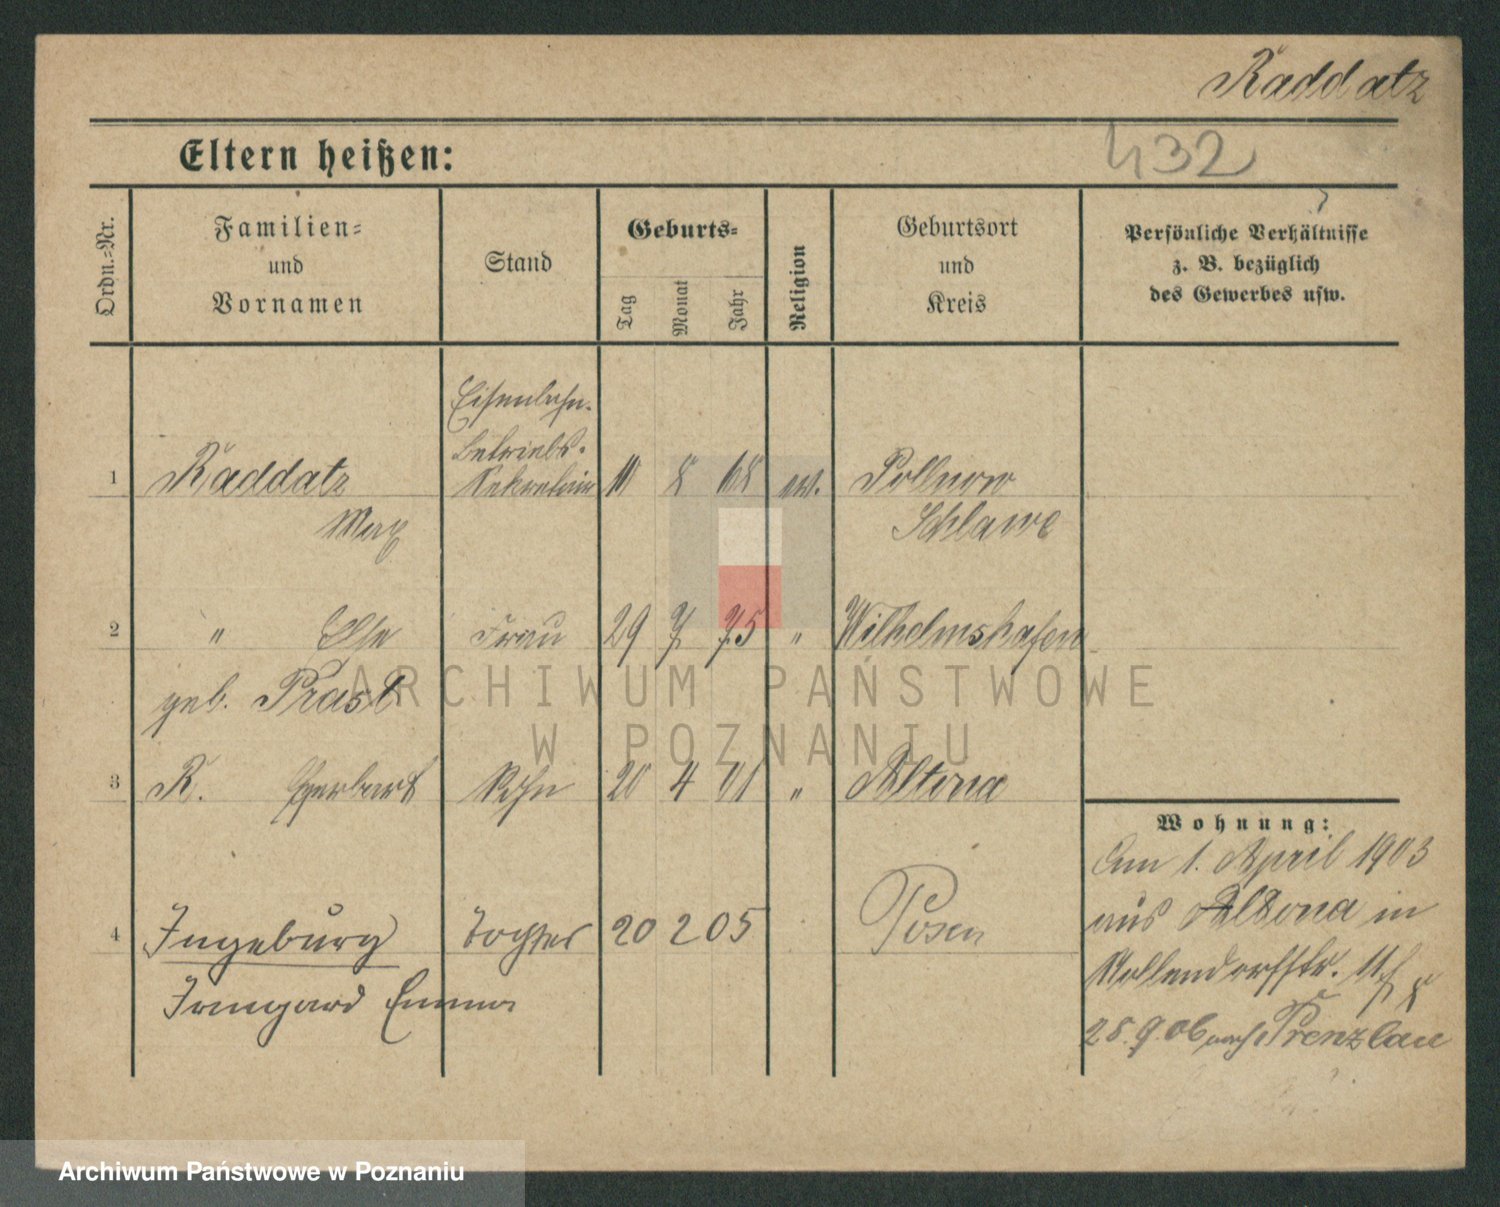 Raddatz
Eltern heißen:
432
Ordn.-Nr.
Familien-
und
Vornamen
Stand
Geburts-
Tag
Monat
Jahr
Religion
Geburtsort
und
Kreis
Persönliche Verhältnisse
z. B. bezüglich
des Gewerbes usw.
Eisenbahn-
Betriebs-
1 Raddatz Sekretair 11 8 68 ev. Pollnow
Max Schlawe
2 " Else Frau 29 7 75 " Wilhelmshafen
geb. Prast
3 R. Gerbart Sohn 20 4 01 " Altona
Wohnung:
Am 1. April 1903
aus Altona in
4 Ingeburg Tochter 20 2 05 Posen
Irmgard Emma
Nollendorfstr. 11
28.9.06 nach Prenzlau
ARCHIWUM PAŃSTWOWE
W POZNANIU
Archiwum Państwowe w Poznaniu